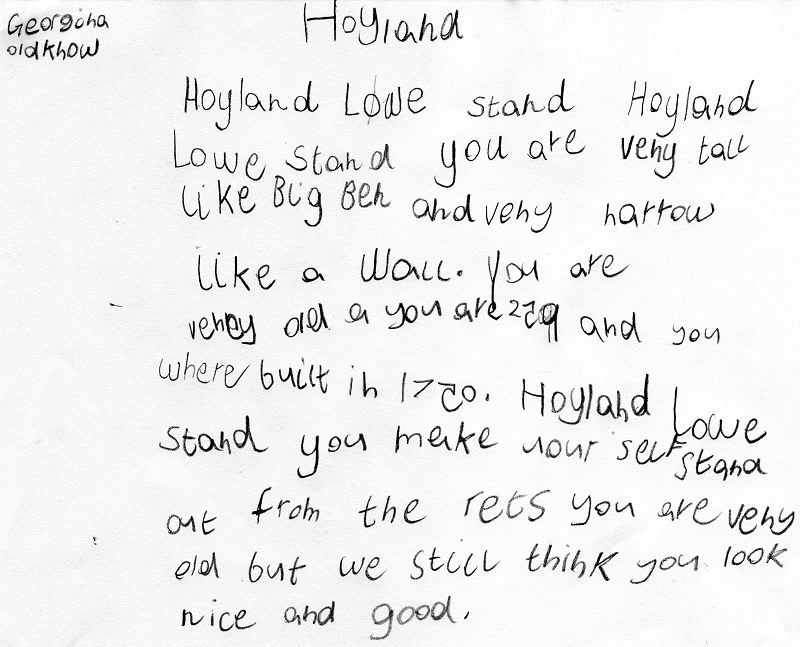 Georgina
oldknow
Hoyland
Hoyland Lowe stand Hoyland
Lowe Stand you are very tall
like Big Ben and very narrow
like a Wall. You are
verey old a you are 259 and you
where built in 1750. Hoyland Lowe
stand you make your self stand
out from the rets you are very
old but we still think you look
nice and good.